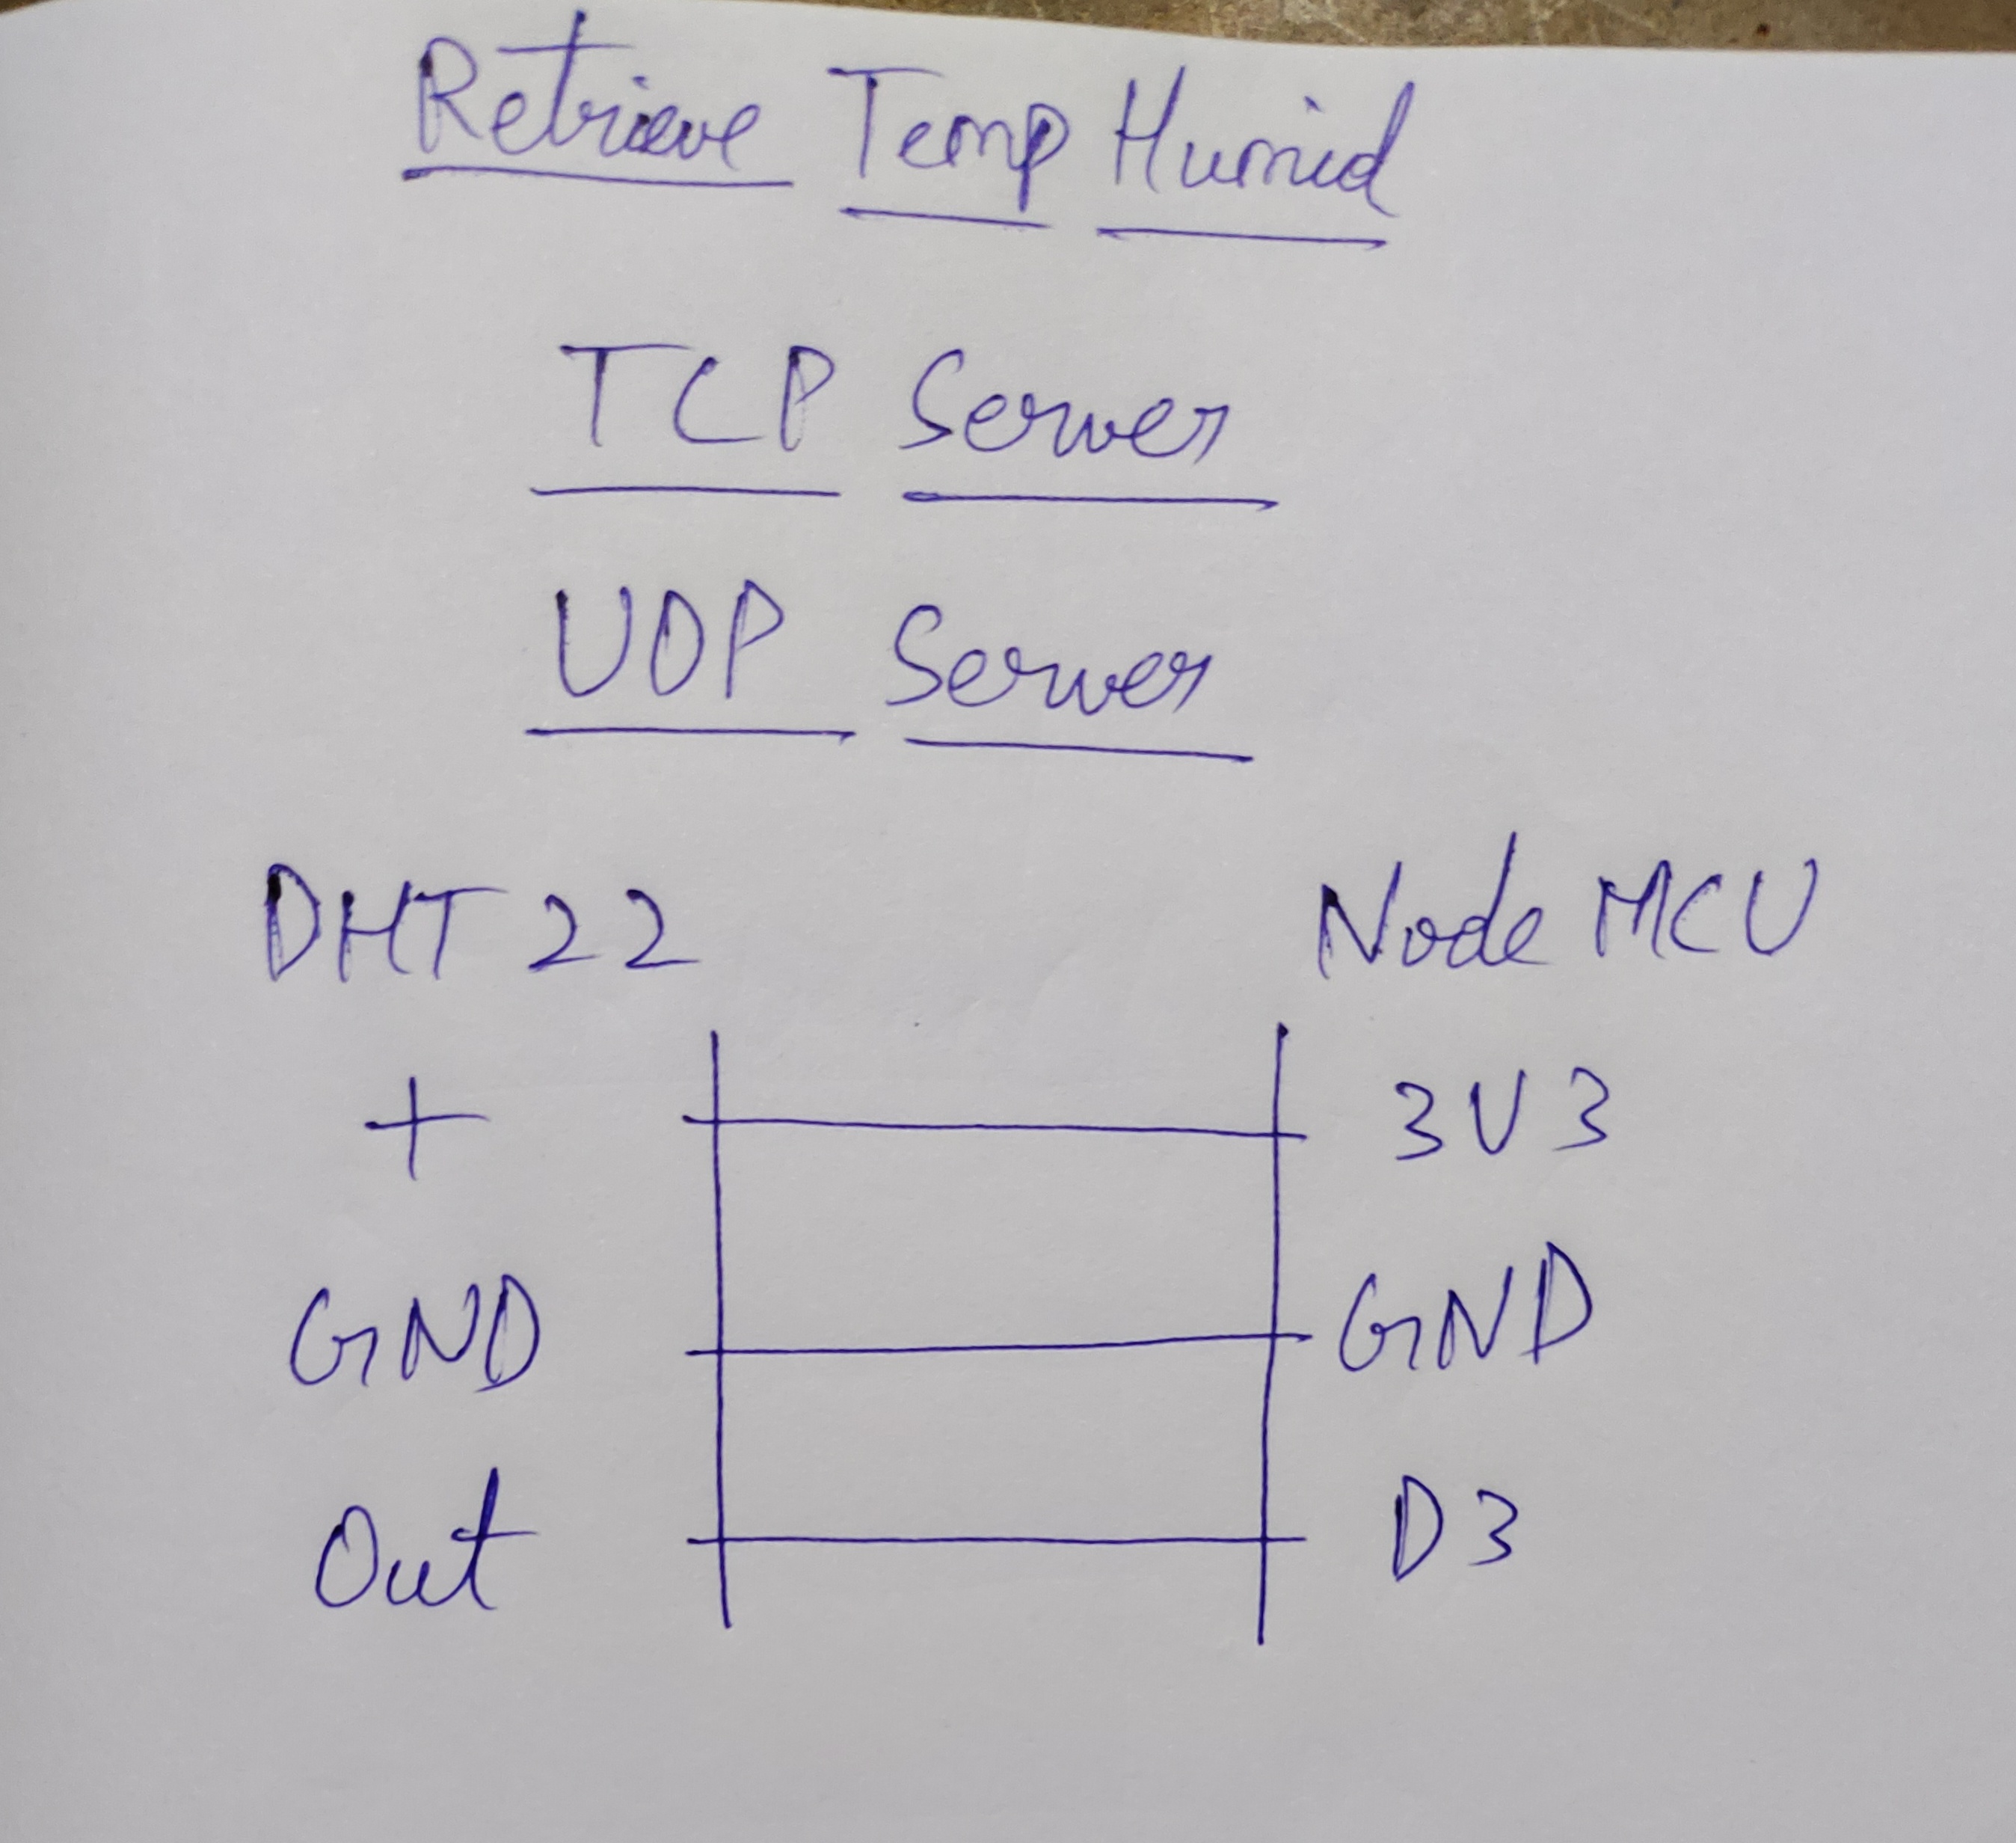 Retrieve Temp Humid
TCP Server
UDP Server
DHT 22 Node MCU
+ 3V3
GND GND
Out D3